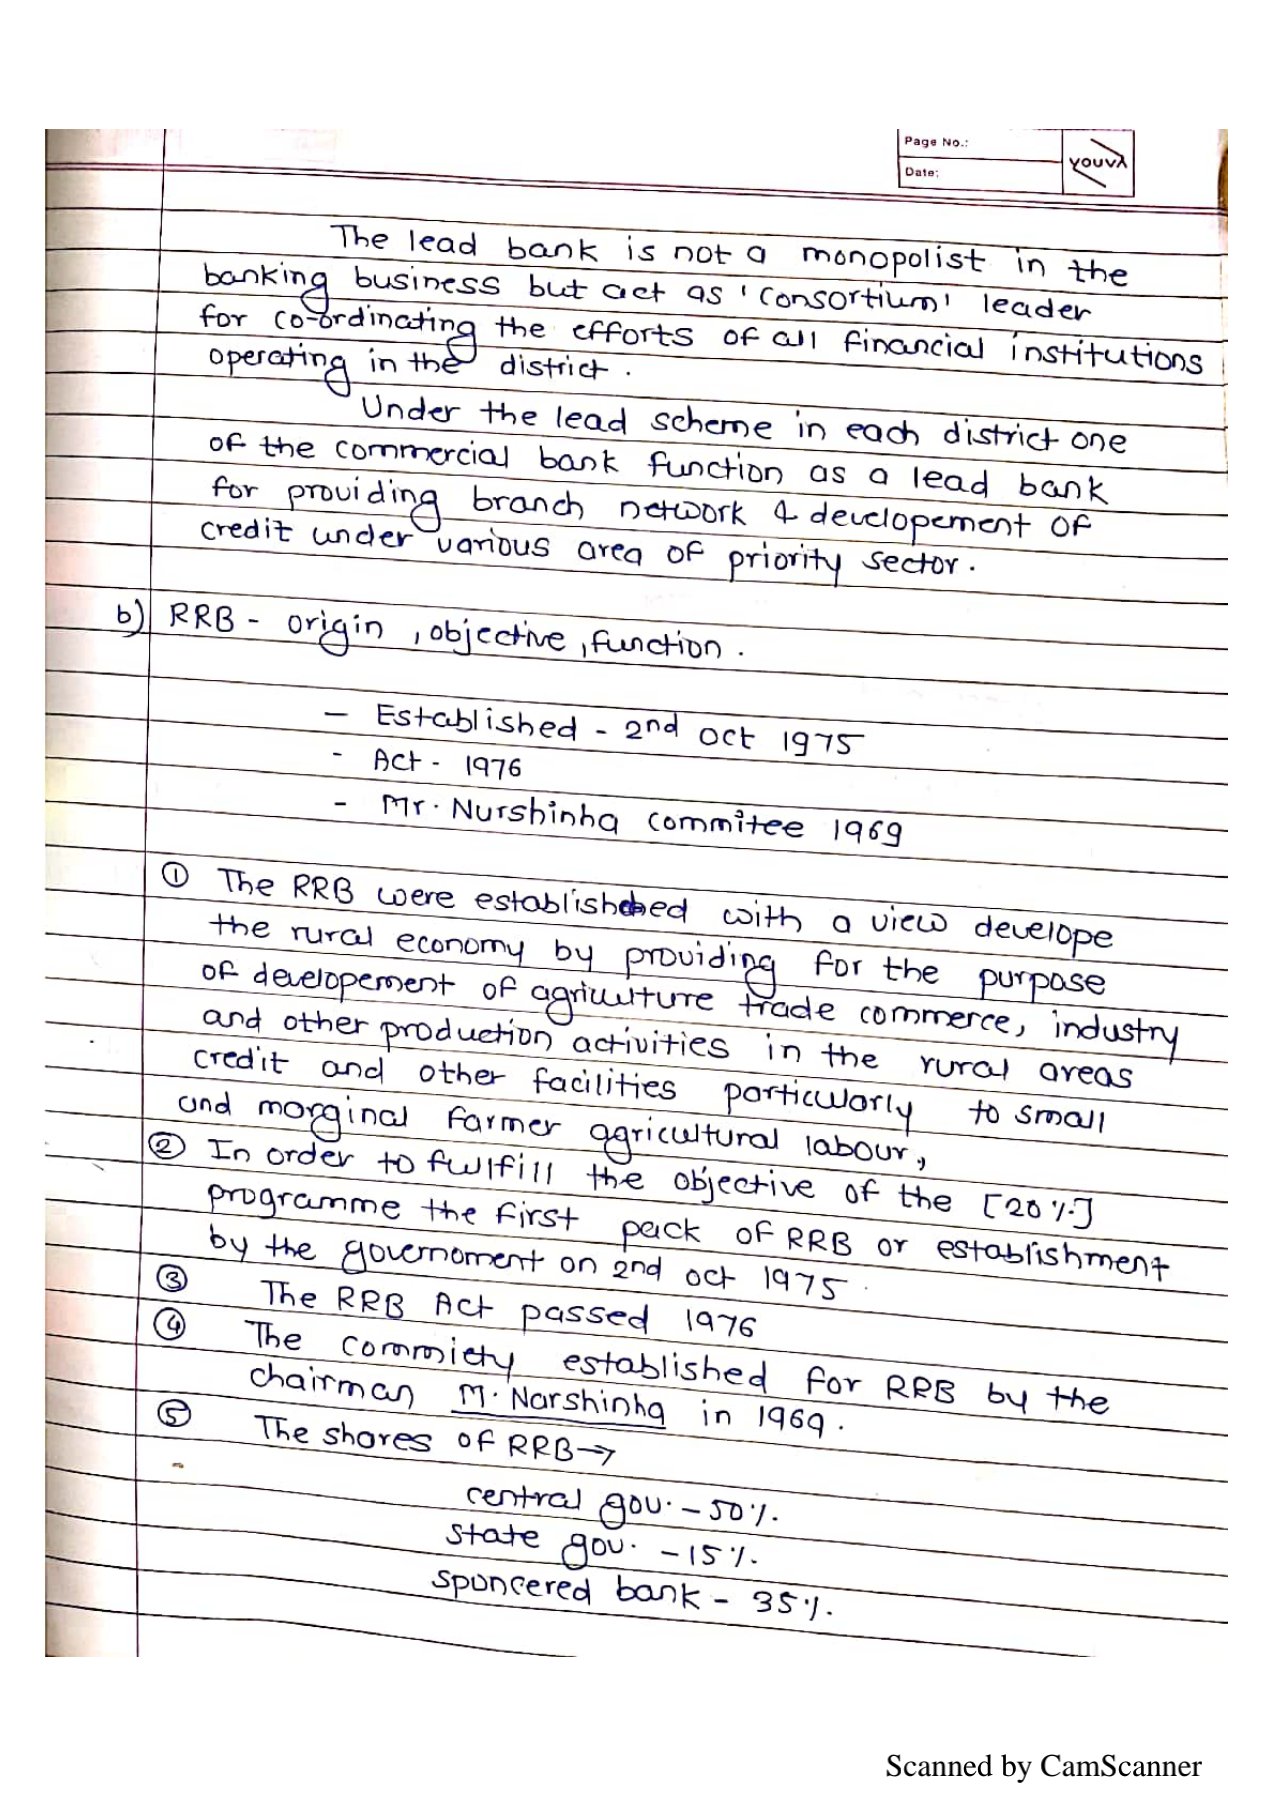 Page No.:
Date:
YOUVA
The lead bank is not a monopolist in the
banking business but act as 'consortium' leader
for co-ordinating the efforts of all financial institutions
operating in the district.
Under the lead scheme in each district one
of the commercial bank function as a lead bank
for providing branch network & developement of
credit under various area of priority sector.
b) RRB - origin, objective, function.
- Established - 2nd oct 1975
- Act - 1976
- Mr. Nurshinha commitee 1969
① The RRB were established with a view develope
the rural economy by providing for the purpose
of developement of agriculture trade commerce, industry
and other production activities in the rural areas
credit and other facilities particularly to small
and marginal farmer agricultural labour,
② In order to fullfill the objective of the [20%]
programme the first pack of RRB or establishment
by the governoment on 2nd oct 1975.
③ The RRB Act passed 1976
④ The commiety established for RRB by the
chairman M. Narshinha in 1969.
⑤ The shares of RRB→
central gov. - 50%.
state gov. - 15%.
sponcered bank - 35%.
Scanned by CamScanner